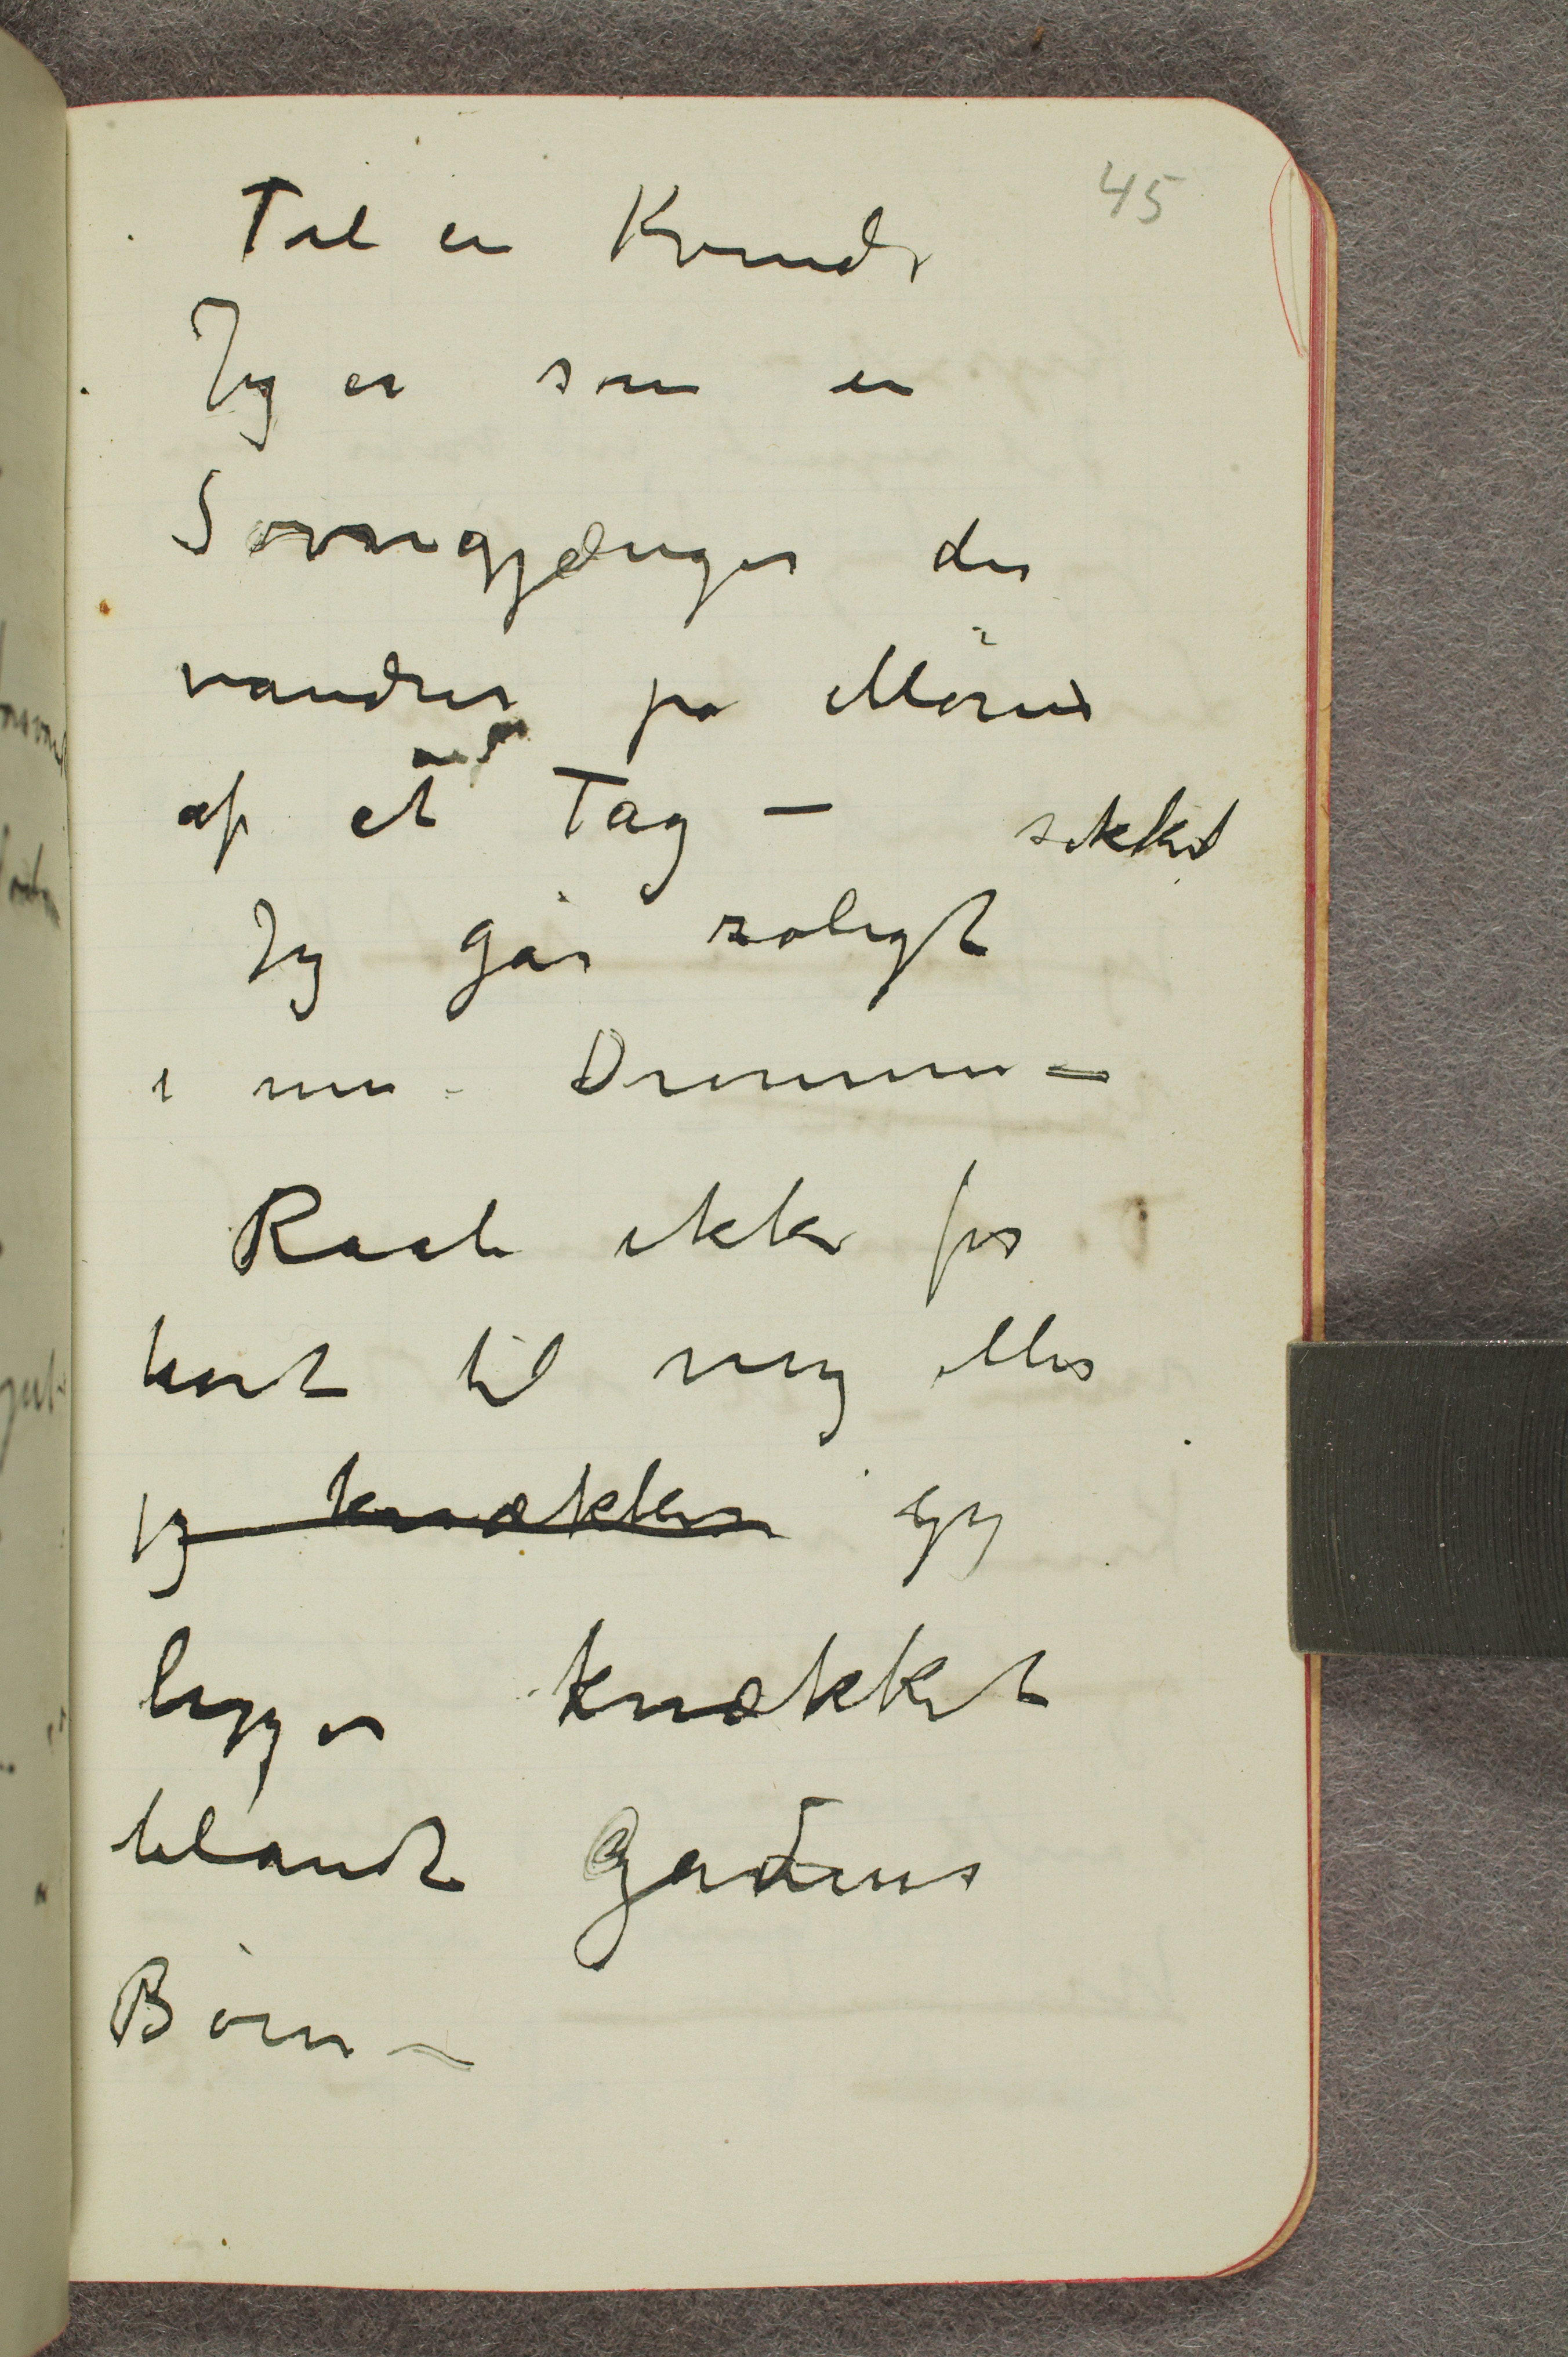 45
Til en Kvinde
Jeg er som en
Søvngjænger der
vandrer på Mønet
af et Tag –
sikkert
Jeg går roligt
i mine Drømme –
Raab ikke for
hart til mig ellers
jeg knækker jeg
ligger knækket
blandt Gadens
Børn –